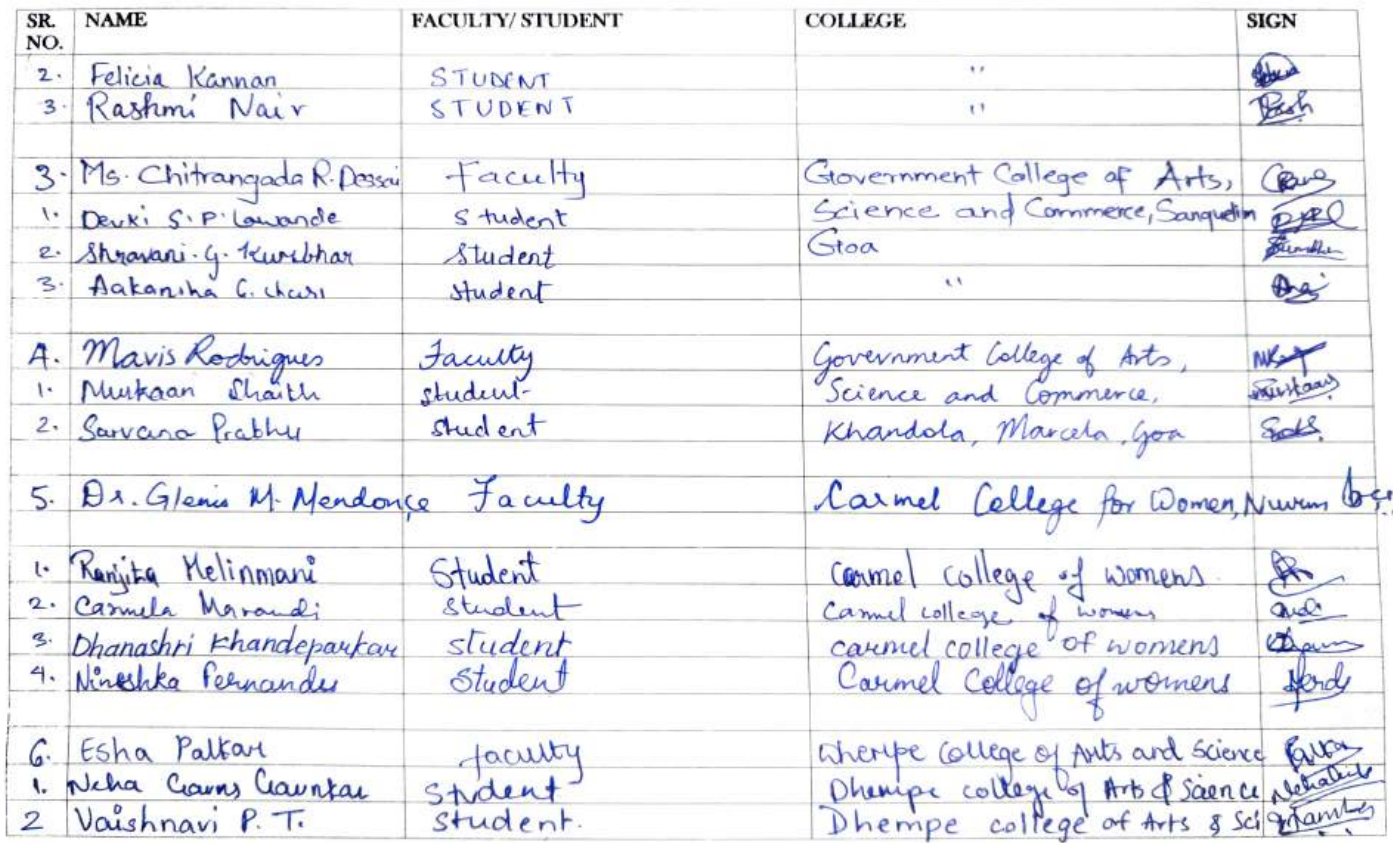 SR. NO. NAME FACULTY/ STUDENT COLLEGE SIGN
2. Felicia Kannan STUDENT "
3. Rashmi Nair STUDENT " Rash
3. Ms. Chitrangada R. Dessai Faculty Government College of Arts,
1. Devki S. P. Lawande Student Science and Commerce, Sanquelim
2. Shravani. G. Kuribhar Student Goa
3. Aakansha G. chari student "
4. Mavis Rodrigues Faculty Government College of Arts,
1. Muskaan Shaikh student Science and Commerce,
2. Sarvana Prabhu student Khandola, Marcela, Goa
5. Dr. Glenis M. Mendonça Faculty Carmel College for Women, Nuvem
1. Ranjita Melinmani Student Carmel college of womens
2. Carmela Marandi Student Carmel college of womens
3. Dhanashri Khandeparkar student carmel college of womens
4. Nireshka Fernandes Student Carmel College of womens
6. Esha Palkar faculty Dhempe College of Arts and Science
1. Neha Gauns Gaunkar Student Dhempe college of Arts & Science
2 Vaishnavi P. T. Student. Dhempe college of Arts & Sci